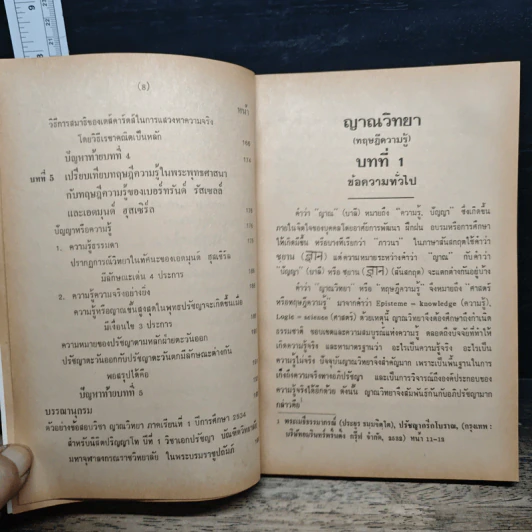 (8)
หน้า
วิธีการสมาธิของเดส์คาร์ตส์ในการแสวงหาความจริง
โดยวิธีเรขาคณิตเป็นหลัก
ปัญหาท้ายบทที่ 4
บทที่ 5 เปรียบเทียบทฤษฎีความรู้ในพระพุทธศาสนา
กับทฤษฎีความรู้ของเบอร์ทรันด์ รัสเซลล์
และเอดมุนด์ ฮุสเซิร์ล
บัญญาหรือความรู้
1. ความรู้ธรรมดา
ปรากฏการณ์วิทยาในทัศนะของเอดมุนด์ ฮุสเซิร์ล
มีลักษณะเด่น 4 ประการ
2. ความรู้ความจริงอย่างยิ่ง
ความรู้หรือญาณขั้นสูงสุดในพุทธปรัชญาจะเกิดขึ้นเมื่อ
มีเงื่อนไข 3 ประการ
ความหมายของปรัชญาตามหลักฝ่ายตะวันออก
ปรัชญาตะวันออกกับปรัชญาตะวันตกมีลักษณะต่างกัน
พอสรุปได้คือ
ปัญหาท้ายบทที่ 5
บรรณานุกรม
ตัวอย่างข้อสอบวิชา ญาณวิทยา ภาคเรียนที่ 1 ปีการศึกษา 2534
สำหรับนิสิตปริญญาโท ปีที่ 1 วิชาเอกปรัชญา บัณฑิตวิทยาลัย
มหาจุฬาลงกรณราชวิทยาลัย ในพระบรมราชูปถัมภ์
ญาณวิทยา
(ทฤษฎีความรู้)
บทที่ 1
ข้อความทั่วไป
คำว่า "ญาณ" (บาลี) หมายถึง "ความรู้, ปัญญา" ซึ่งเกิดขึ้น
ภายในจิตใจของบุคคลโดยอาศัยการพัฒนา ฝึกฝน อบรมหรือการศึกษา
ให้เกิดขึ้น หรือบางทีเรียกว่า "ภาวนา" ในภาษาสันสกฤตใช้คำว่า
ชฺญาน แต่ความหมายระหว่างคำว่า "ญาณ" กับคำว่า
"ปัญญา" (บาลี) หรือ ชฺญาน (สันสกฤต) จะแตกต่างกันอยู่บ้าง
คำว่า "ญาณวิทยา" หรือ "ทฤษฎีความรู้" จึงหมายถึง "ศาสตร์
หรือทฤษฎีความรู้" มาจากคำว่า Episteme = knowledge (ความรู้),
Logic = science (ศาสตร์) ด้วยเหตุนี้ ญาณวิทยาจึงต้องศึกษาถึงกำเนิด
ธรรมชาติ ขอบเขตและความสมบูรณ์แห่งความรู้ ตลอดถึงปัจจัยที่ทำให้
เกิดความรู้จริง และหามาตรฐานว่า อะไรเป็นความรู้จริง อะไรเป็น
ความรู้ไม่จริง ปัจจุบันญาณวิทยาจึงสำคัญมาก เพราะเป็นพื้นฐานในการ
เกิดถึงความจริงทางอภิปรัชญา และเป็นการวิจารณ์ถึงองค์ประกอบของ
ความรู้จริงได้อีกด้วย ดังนั้น ญาณวิทยาจึงสัมพันธ์กันกับอภิปรัชญามาก
กล่าวคือ¹
1 พระเมธีธรรมาภรณ์ (ประยูร ธมฺมจิตฺโต), ปรัชญากรีกโบราณ, (กรุงเทพ :
บริษัทอมรินทร์พริ้นติ้ง กรุ๊ฟ จำกัด, 2532) หน้า 11-13